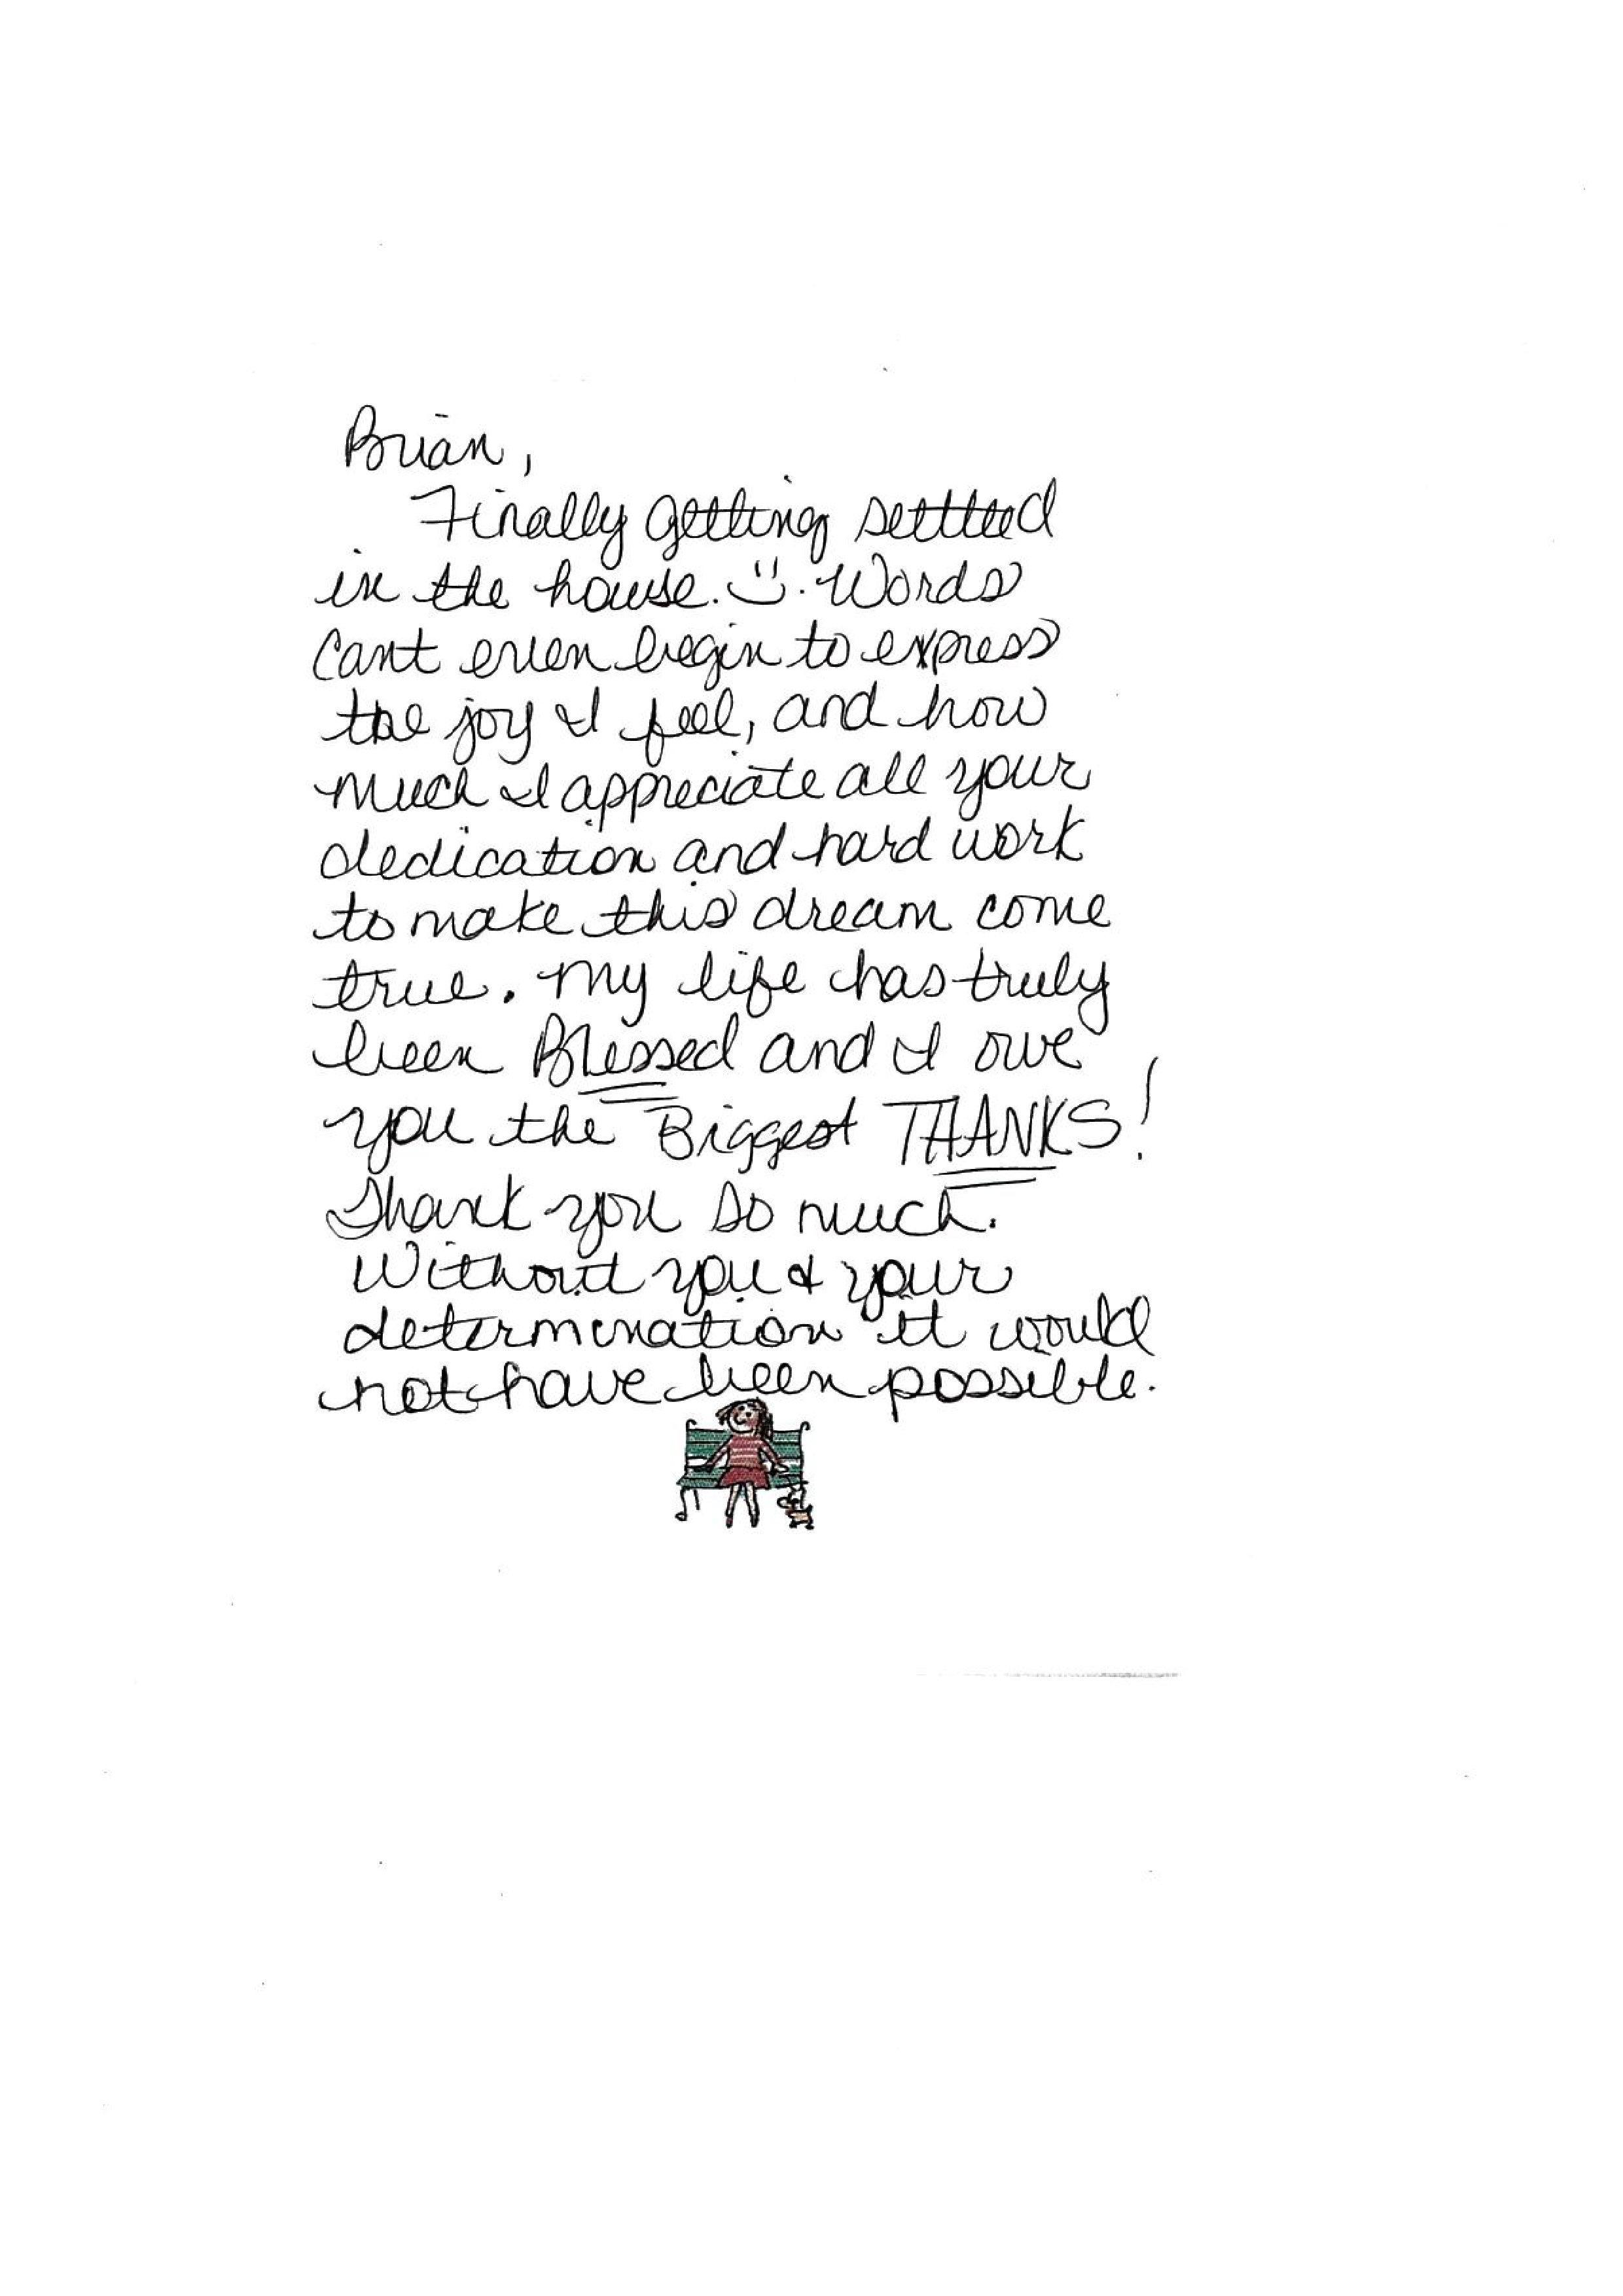 Brian,
Finally getting settled
in the house. ☺. Words
Cant even begin to express
the joy I feel, and how
much I appreciate all your
dedication and hard work
to make this dream come
true. My life has truly
been Blessed and I owe
you the Biggest THANKS!
Thank you so much.
Without you & your
determination it would
not have been possible.